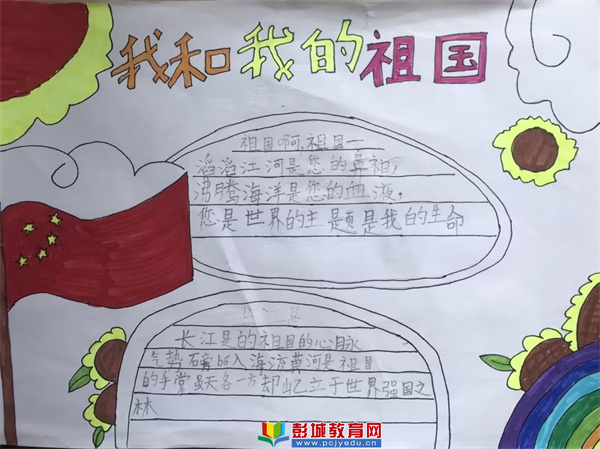 我和我的祖国
祖国啊,祖国—
滔滔江河是您的真相,
沸腾海洋是您的血液,
您是世界的主题是我的生命
长江是的祖国的心脉
气势磅的入海流黄河是祖国
的手掌虽天各一方却屹立于世界强国之
林
彭城教育网
www.pcjyedu.cn